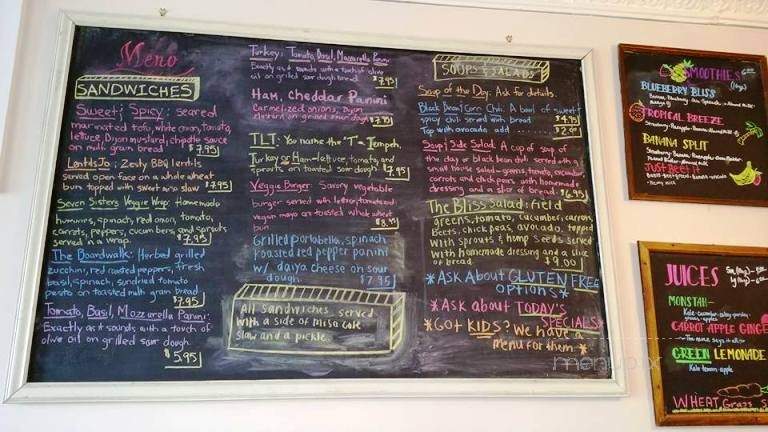 Menu
SANDWICHES
Sweet & Spicy: seared
marinated tofu, white onion, tomato,
lettuce, Dijon mustard, chipotle sauce
on multi grain bread $7.95
LentilsJo: Zesty BBQ lentils
served open face on a whole wheat
bun topped with sweet miso slaw $7.95
Seven Sisters Veggie Wrap: Homemade
hummus, spinach, red onion, tomato,
carrots, peppers, cucumbers, and sprouts
served in a wrap. $7.95
The Boardwalk: Herbed grilled
zucchini, red roasted peppers, fresh
basil, spinach, sundried tomato
pesto on toasted multi grain bread
$7.95
Tomato, Basil, Mozzarella Panini:
Exactly as it sounds with a touch of
olive oil on grilled sour dough
$5.95
Turkey, Tomato, Basil, Mozzarella Panini
Exactly as it sounds with a touch of olive
oil on grilled sour dough bread $7.95
Ham, Cheddar Panini
Carmelized onions, Dijon
mustard on grilled sour dough $7.95
TLT: You name the "T" = Tempeh,
Turkey or Ham - lettuce, tomato, and
sprouts on toasted sour dough $7.95
Veggie Burger: Savory vegetable
burger served with lettuce, tomato, and
vegan mayo on toasted whole wheat
bun $8.95
Grilled portobella, spinach
roasted red pepper panini
w/ daiya cheese on sour
dough $7.95
All sandwiches served
with a side of miso cole
slaw and a pickle.
SOUPS & SALADS
Soup of the Day: Ask for details.
Black Bean/Corn Chili: A bowl of sweet &
spicy chili served with bread $4.95
Top with avocado add $2.00
Soup & Side Salad: A cup of soup of
the day or black bean chili served with a
small house salad - greens, tomato, cucumber,
carrots and chick peas with homemade
dressing and a slice of bread. $6.95
The Bliss Salad: field
greens, tomato, cucumber, carrots,
Beets, chick peas, avocado, topped
with sprouts & hemp seeds served
with homemade dressing and a slice
of bread $9.00
*Ask About GLUTEN FREE
OPTIONS*
*Ask about TODAY'S
SPECIALS*
*Got KIDS? We have a
menu for them*
SMOOTHIES
BLUEBERRY BLISS
TROPICAL BREEZE
Strawberry-Pineapple-Banana-Almond Milk
BANANA SPLIT
JUST BEET IT
JUICES
MONSTAH-
CARROT APPLE GINGE
-The name says it all-
GREEN LEMONADE
Kale-lemon-apple
WHEAT Grass S
menupix